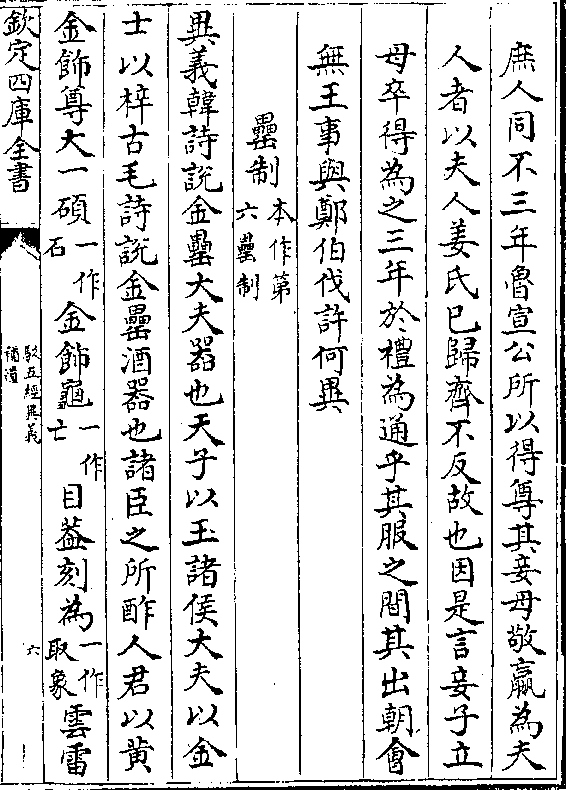 庶人同不三年魯宣公所以得尊其妾母敬嬴為夫
人者以夫人姜氏已歸齊不反故也因是言妾子立
母卒得為之三年於禮為通乎其服之間其出朝會
無王事與鄭伯伐許何異
罍制本作第六罍制
異義韓詩說金罍大夫器也天子以玉諸侯大夫以金
士以梓古毛詩說金罍酒器也諸臣之所酢人君以黄
金飾尊大一碩一作石金飾龜一作亡目葢刻為一作取象雲雷
欽定四庫全書
駁五經異義補遺
六